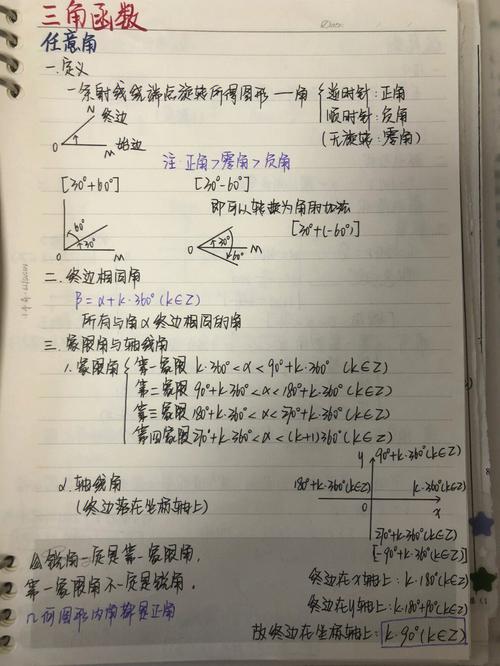 三角函数
任意角
一.定义
一条射线绕端点旋转所得图形 — 角 { 逆时针:正角
顺时针:负角
(无旋转:零角)
N 终边
O 始边 M
注 正角>零角>负角
[30°+60°] [30°-60°]
即可以转换为角的加法
[30°+(-60°)]
60° 30° O M
30° 60° O M
二.终边相同角
β=α+k·360°(k∈Z)
所有与角α终边相同的角
三.象限角与轴线角
1.象限角 { 第一象限 k·360°<α<90°+k·360° (k∈Z)
第二象限 90°+k·360°<α<180°+k·360° (k∈Z)
第三象限 180°+k·360°<α<270°+k·360° (k∈Z)
第四象限 270°+k·360°<α<(k+1)360° (k∈Z)
y 90°+k·360°(k∈Z)
2.轴线角 180°+k·360°(k∈Z) k·360°(k∈Z)
(终边落在坐标轴上) O x
270°+k·360°(k∈Z)
[-90°+k·360°(k∈Z)]
△锐角一定是第一象限角,
第一象限角不一定是锐角,
几何图形内角都是正角
终边在x轴上:k·180°(k∈Z)
终边在y轴上:k·180°+90°(k∈Z)
故终边在坐标轴上:k·90°(k∈Z)